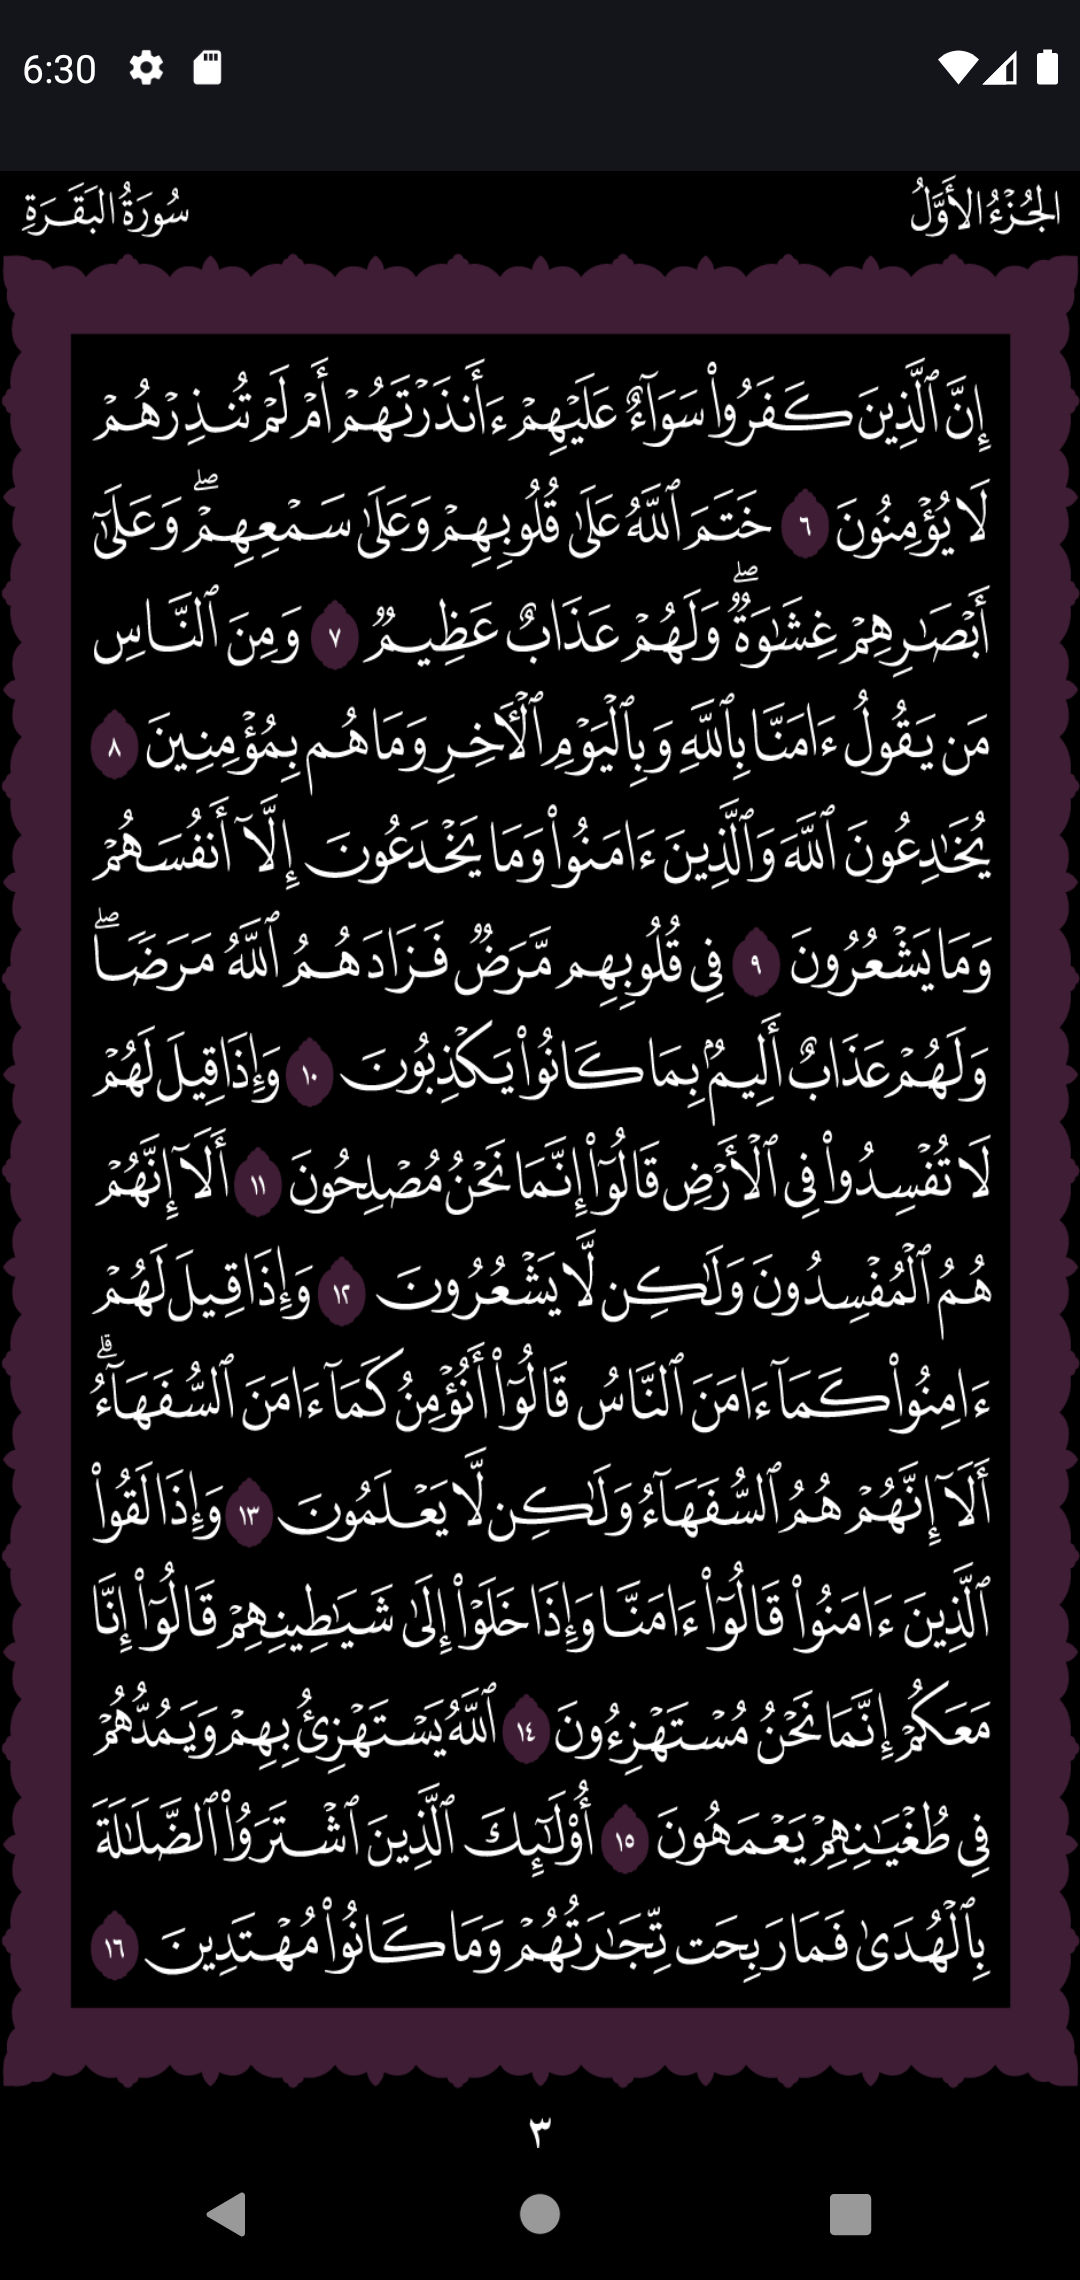 6:30
الجُزْءُ الأَوَّلُ
سُورَةُ البَقَرَةِ
إِنَّ ٱلَّذِينَ كَفَرُوا۟ سَوَآءٌ عَلَيْهِمْ ءَأَنذَرْتَهُمْ أَمْ لَمْ تُنذِرْهُمْ
لَا يُؤْمِنُونَ ٦ خَتَمَ ٱللَّهُ عَلَىٰ قُلُوبِهِمْ وَعَلَىٰ سَمْعِهِمْ ۖ وَعَلَىٰٓ
أَبْصَـٰرِهِمْ غِشَـٰوَةٌ ۖ وَلَهُمْ عَذَابٌ عَظِيمٌ ٧ وَمِنَ ٱلنَّاسِ
مَن يَقُولُ ءَامَنَّا بِٱللَّهِ وَبِٱلْيَوْمِ ٱلْـَٔاخِرِ وَمَا هُم بِمُؤْمِنِينَ ٨
يُخَـٰدِعُونَ ٱللَّهَ وَٱلَّذِينَ ءَامَنُوا۟ وَمَا يَخْدَعُونَ إِلَّآ أَنفُسَهُمْ
وَمَا يَشْعُرُونَ ٩ فِى قُلُوبِهِم مَّرَضٌ فَزَادَهُمُ ٱللَّهُ مَرَضًا ۖ
وَلَهُمْ عَذَابٌ أَلِيمٌۢ بِمَا كَانُوا۟ يَكْذِبُونَ ١٠ وَإِذَا قِيلَ لَهُمْ
لَا تُفْسِدُوا۟ فِى ٱلْأَرْضِ قَالُوٓا۟ إِنَّمَا نَحْنُ مُصْلِحُونَ ١١ أَلَآ إِنَّهُمْ
هُمُ ٱلْمُفْسِدُونَ وَلَـٰكِن لَّا يَشْعُرُونَ ١٢ وَإِذَا قِيلَ لَهُمْ
ءَامِنُوا۟ كَمَآ ءَامَنَ ٱلنَّاسُ قَالُوٓا۟ أَنُؤْمِنُ كَمَآ ءَامَنَ ٱلسُّفَهَآءُ ۗ
أَلَآ إِنَّهُمْ هُمُ ٱلسُّفَهَآءُ وَلَـٰكِن لَّا يَعْلَمُونَ ١٣ وَإِذَا لَقُوا۟
ٱلَّذِينَ ءَامَنُوا۟ قَالُوٓا۟ ءَامَنَّا وَإِذَا خَلَوْا۟ إِلَىٰ شَيَـٰطِينِهِمْ قَالُوٓا۟ إِنَّا
مَعَكُمْ إِنَّمَا نَحْنُ مُسْتَهْزِءُونَ ١٤ ٱللَّهُ يَسْتَهْزِئُ بِهِمْ وَيَمُدُّهُمْ
فِى طُغْيَـٰنِهِمْ يَعْمَهُونَ ١٥ أُو۟لَـٰٓئِكَ ٱلَّذِينَ ٱشْتَرَوُا۟ ٱلضَّلَـٰلَةَ
بِٱلْهُدَىٰ فَمَا رَبِحَت تِّجَـٰرَتُهُمْ وَمَا كَانُوا۟ مُهْتَدِينَ ١٦
٣